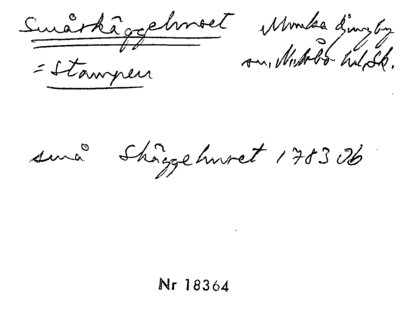 Småskäggehuset Munka Ljungby
= Stampen sn, N. Åsbo hd, Sk.
små Skäggehuset 1783 Ob
Nr 18364